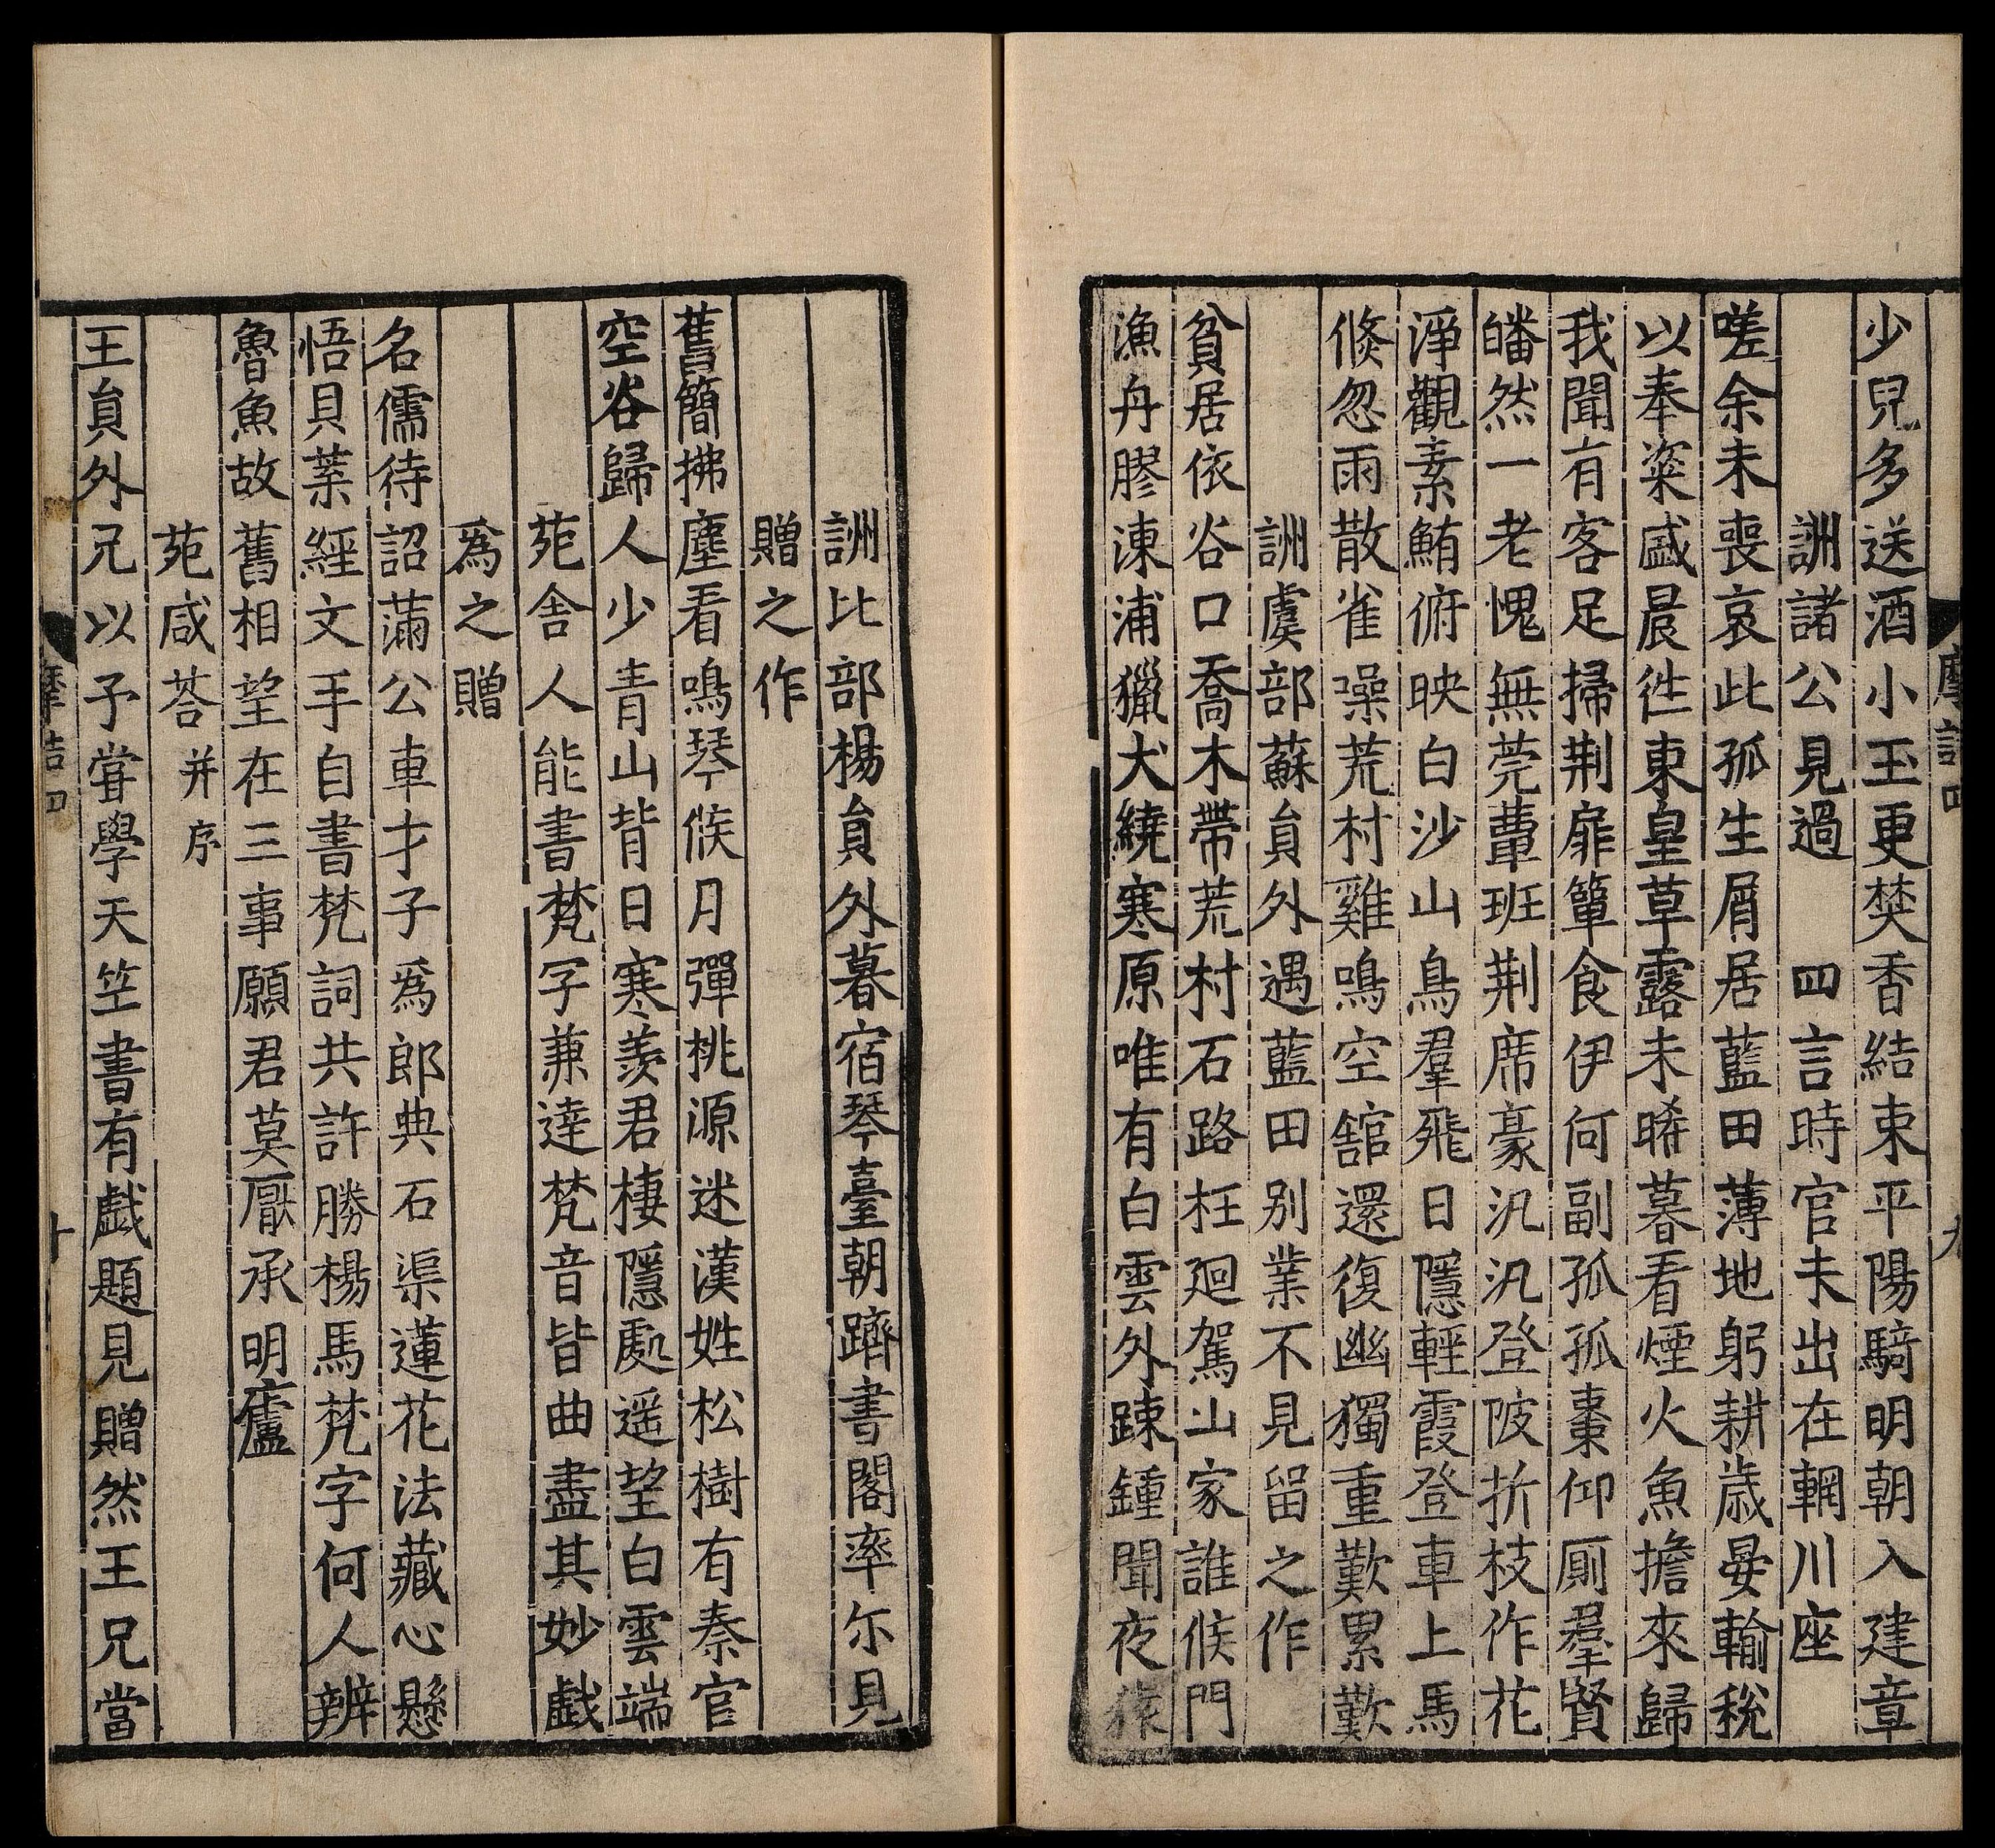 少兒多送酒小玉更焚香結束平陽騎明朝入建章
詶諸公見過 四言時官未出在輞川座
嗟余未喪哀此孤生屏居藍田薄地躬耕歳晏輸稅
以奉粢盛晨徃東皐草露未晞暮看煙火魚擔來歸
我聞有客足掃荆扉簞食伊何副孤孤棗仰厠羣賢
皤然一老愧無莞蕈班荆席豪汎汎登陂折枝作花
淨觀素鮪俯映白沙山鳥羣飛日隱輕霞登車上馬
倐忽雨散雀噪荒村雞鳴空館還復幽獨重歎累歎
詶虞部蘇貟外遇藍田别業不見留之作
貧居依谷口喬木帶荒村石路枉廻駕山家誰候門
漁舟膠凍浦獵犬繞寒原唯有白雲外踈鍾聞夜猿
摩詰四
九
詶比部楊貟外暮宿琴臺朝躋書閣率尔見
贈之作
舊簡拂塵看鳴琴候月彈桃源迷漢姓松樹有秦官
空谷歸人少青山背日寒羨君棲隱處遥望白雲端
苑舍人能書梵字兼達梵音皆曲盡其妙戯
爲之贈
名儒待詔滿公車才子爲郎典石渠蓮花法藏心懸
悟貝葉經文手自書梵詞共許勝楊馬梵字何人辨
魯魚故舊相望在三事願君莫厭承明廬
苑咸荅并序
王貟外兄以予甞學天竺書有戯題見贈然王兄當
摩詰四
十